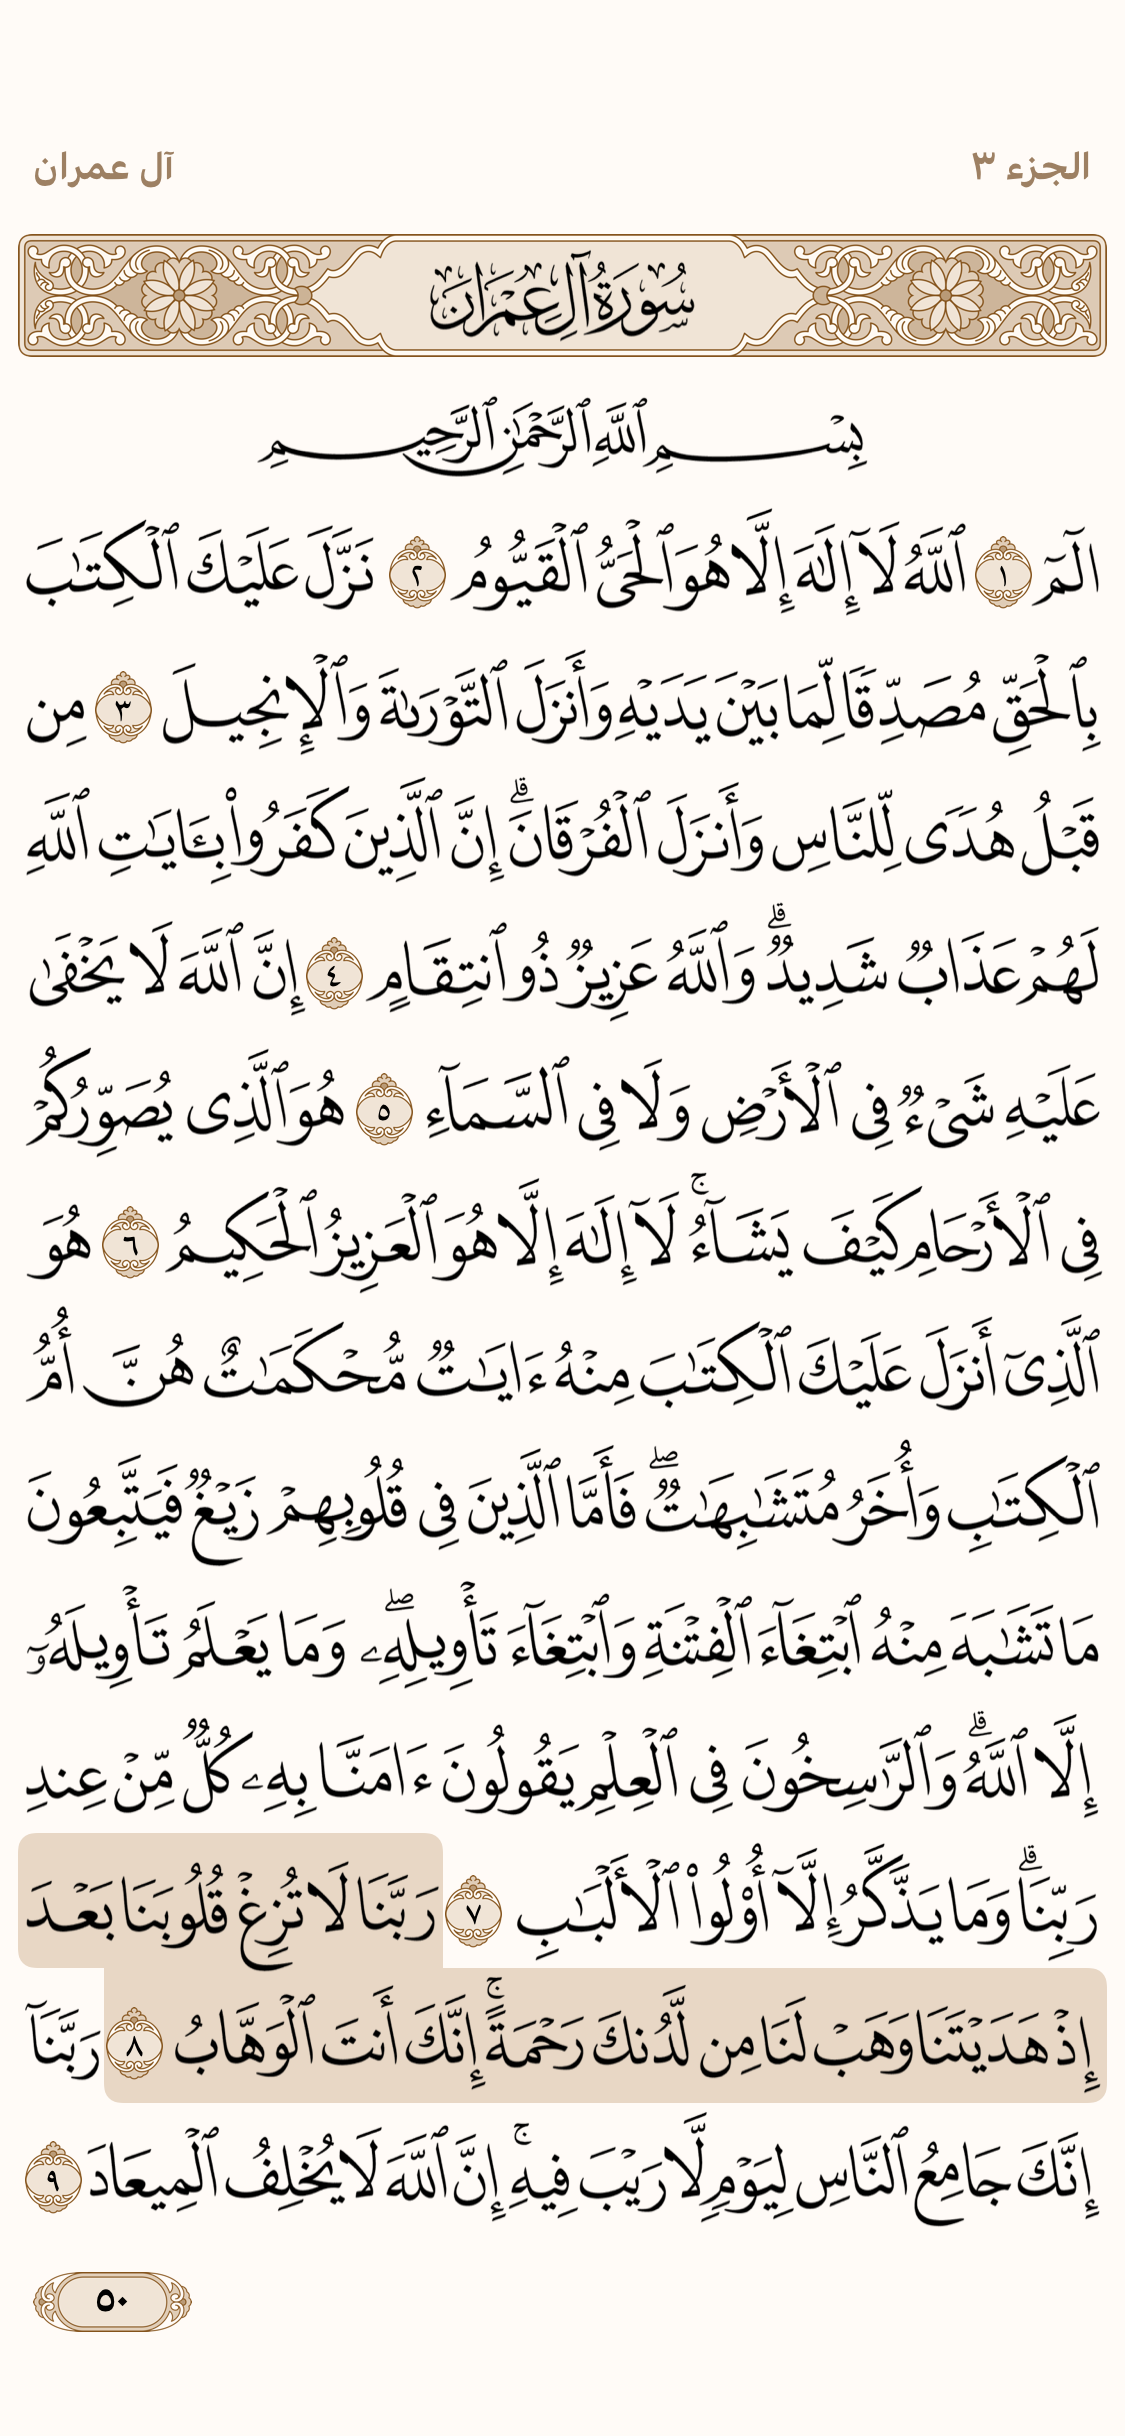 الجزء ٣
آل عمران
سُورَةُ آلِ عِمْرَانَ
بِسْمِ ٱللَّهِ ٱلرَّحْمَٰنِ ٱلرَّحِيمِ
الٓمٓ ١ ٱللَّهُ لَآ إِلَٰهَ إِلَّا هُوَ ٱلْحَىُّ ٱلْقَيُّومُ ٢ نَزَّلَ عَلَيْكَ ٱلْكِتَٰبَ
بِٱلْحَقِّ مُصَدِّقًا لِّمَا بَيْنَ يَدَيْهِ وَأَنزَلَ ٱلتَّوْرَىٰةَ وَٱلْإِنجِيلَ ٣ مِن
قَبْلُ هُدًى لِّلنَّاسِ وَأَنزَلَ ٱلْفُرْقَانَ ۗ إِنَّ ٱلَّذِينَ كَفَرُوا۟ بِـَٔايَٰتِ ٱللَّهِ
لَهُمْ عَذَابٌ شَدِيدٌ ۗ وَٱللَّهُ عَزِيزٌ ذُو ٱنتِقَامٍ ٤ إِنَّ ٱللَّهَ لَا يَخْفَىٰ
عَلَيْهِ شَىْءٌ فِى ٱلْأَرْضِ وَلَا فِى ٱلسَّمَآءِ ٥ هُوَ ٱلَّذِى يُصَوِّرُكُمْ
فِى ٱلْأَرْحَامِ كَيْفَ يَشَآءُ ۚ لَآ إِلَٰهَ إِلَّا هُوَ ٱلْعَزِيزُ ٱلْحَكِيمُ ٦ هُوَ
ٱلَّذِىٓ أَنزَلَ عَلَيْكَ ٱلْكِتَٰبَ مِنْهُ ءَايَٰتٌ مُّحْكَمَٰتٌ هُنَّ أُمُّ
ٱلْكِتَٰبِ وَأُخَرُ مُتَشَٰبِهَٰتٌ ۖ فَأَمَّا ٱلَّذِينَ فِى قُلُوبِهِمْ زَيْغٌ فَيَتَّبِعُونَ
مَا تَشَٰبَهَ مِنْهُ ٱبْتِغَآءَ ٱلْفِتْنَةِ وَٱبْتِغَآءَ تَأْوِيلِهِۦ ۖ وَمَا يَعْلَمُ تَأْوِيلَهُۥٓ
إِلَّا ٱللَّهُ ۗ وَٱلرَّٰسِخُونَ فِى ٱلْعِلْمِ يَقُولُونَ ءَامَنَّا بِهِۦ كُلٌّ مِّنْ عِندِ
رَبِّنَا ۗ وَمَا يَذَّكَّرُ إِلَّآ أُو۟لُوا۟ ٱلْأَلْبَٰبِ ٧ رَبَّنَا لَا تُزِغْ قُلُوبَنَا بَعْدَ
إِذْ هَدَيْتَنَا وَهَبْ لَنَا مِن لَّدُنكَ رَحْمَةً ۚ إِنَّكَ أَنتَ ٱلْوَهَّابُ ٨ رَبَّنَآ
إِنَّكَ جَامِعُ ٱلنَّاسِ لِيَوْمٍ لَّا رَيْبَ فِيهِ ۚ إِنَّ ٱللَّهَ لَا يُخْلِفُ ٱلْمِيعَادَ ٩
٥٠